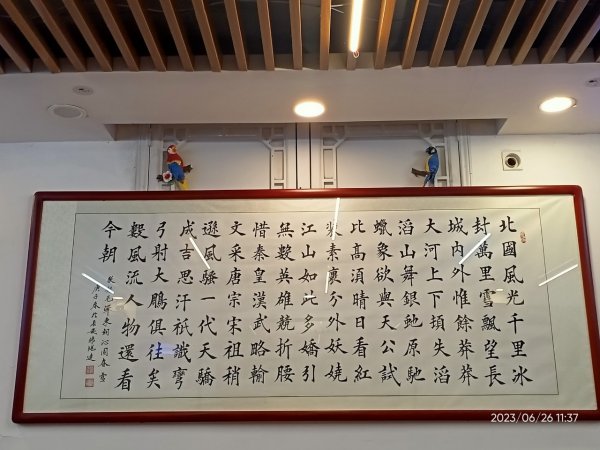 北國風光千里冰
封萬里雪飄望長
城內外惟餘莽莽
大河上下頓失滔
滔山舞銀虵原馳
蠟象欲與天公試
比高須晴日看紅
裝素裹分外妖嬈
江山如此多嬌引
無數英雄競折腰
惜秦皇漢武略輸
文采唐宗宋祖稍
遜風騷一代天驕
成吉思汗祇識彎
弓射大鵰俱往矣
數風流人物還看
今朝
毛澤東詞沁園春雪
庚子春
2023/06/26 11:37